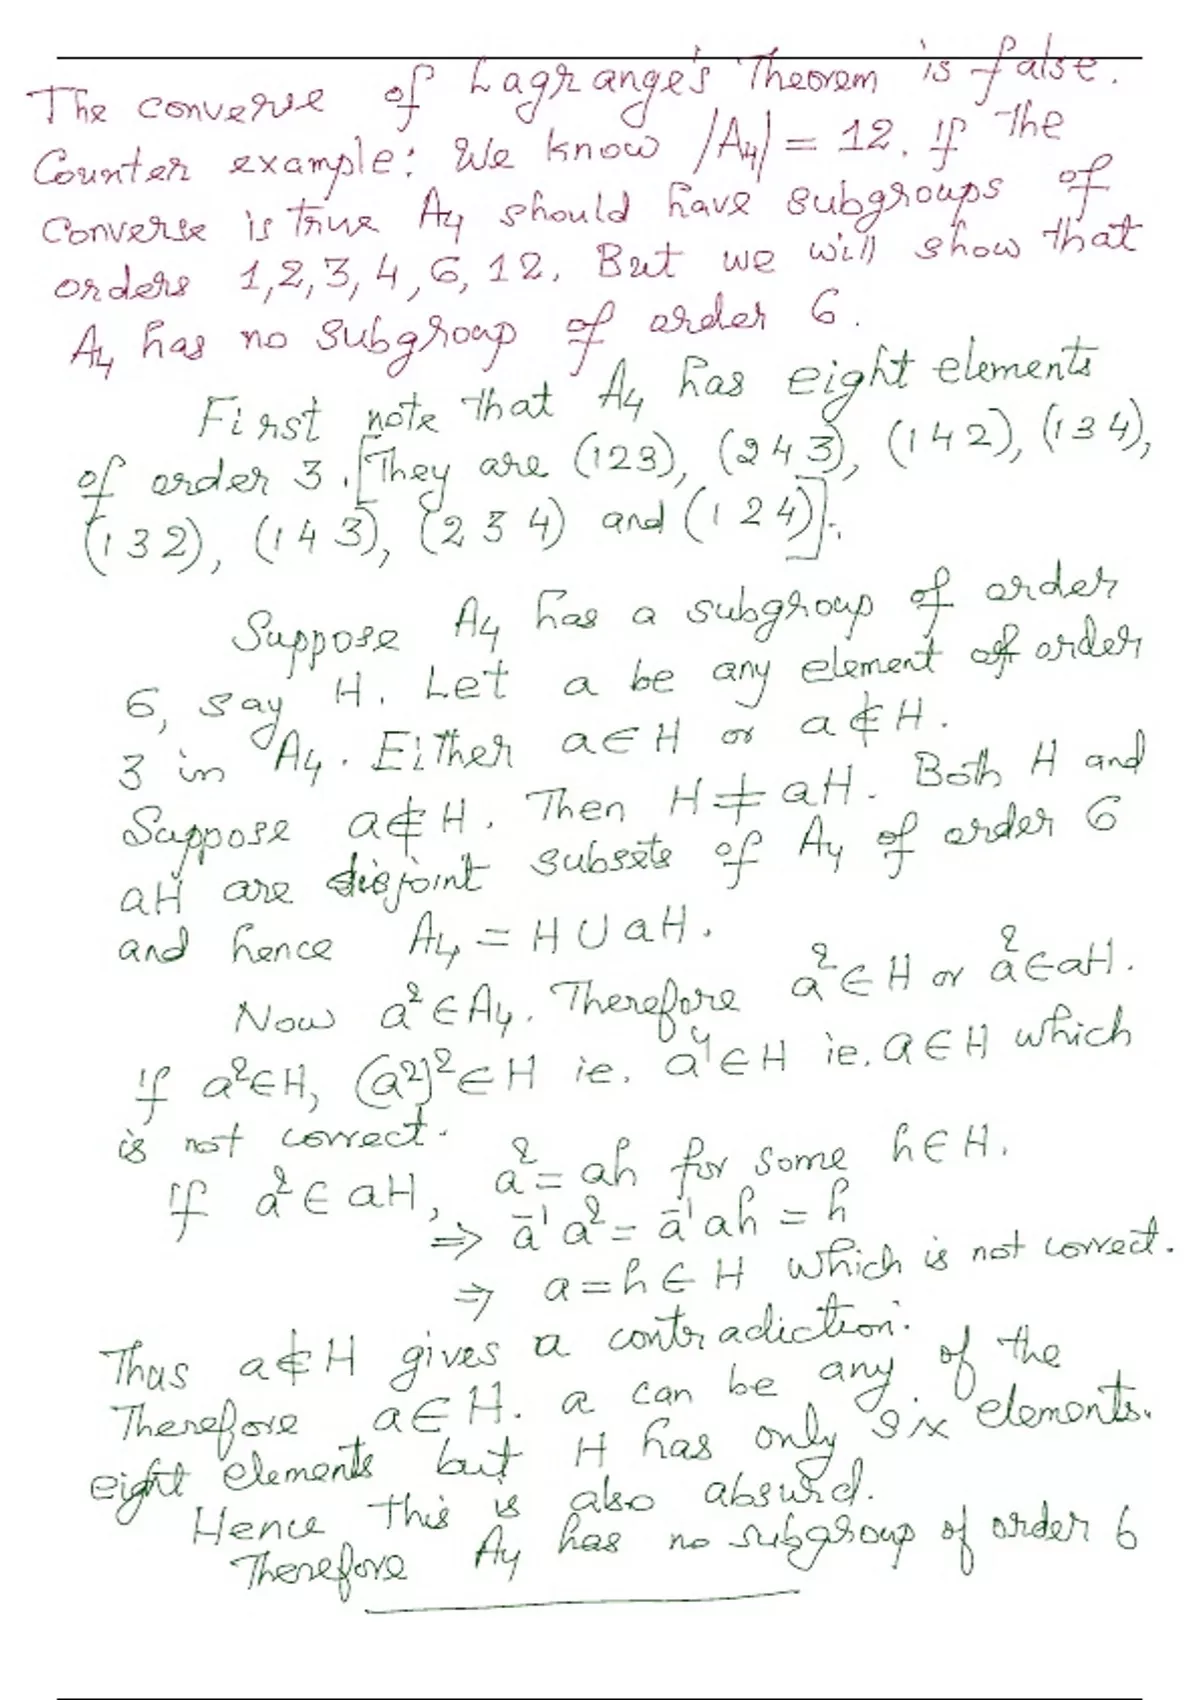 The converse of Lagrange's Theorem is false.
Counter example: We know |A₄| = 12. If the
converse is true A₄ should have subgroups of
orders 1,2,3,4,6,12. But we will show that
A₄ has no subgroup of order 6.
First note that A₄ has eight elements
of order 3. [They are (123), (243), (142), (134),
(132), (143), (234) and (124)].
Suppose A₄ has a subgroup of order
6, say H. Let a be any element of order
3 in A₄. Either a∈H or a∉H.
Suppose a∉H. Then H≠aH. Both H and
aH are disjoint subsets of A₄ of order 6
and hence A₄ = H∪aH.
Now a²∈A₄. Therefore a²∈H or a²∈aH.
If a²∈H, (a²)²∈H ie. a⁴∈H ie. a∈H which
is not correct.
If a²∈aH, a²=ah for some h∈H.
⇒ a⁻¹a²=a⁻¹ah=h
⇒ a=h∈H which is not correct.
Thus a∉H gives a contradiction.
Therefore a∈H. a can be any of the
eight elements but H has only six elements.
Hence this is also absurd.
Therefore A₄ has no subgroup of order 6